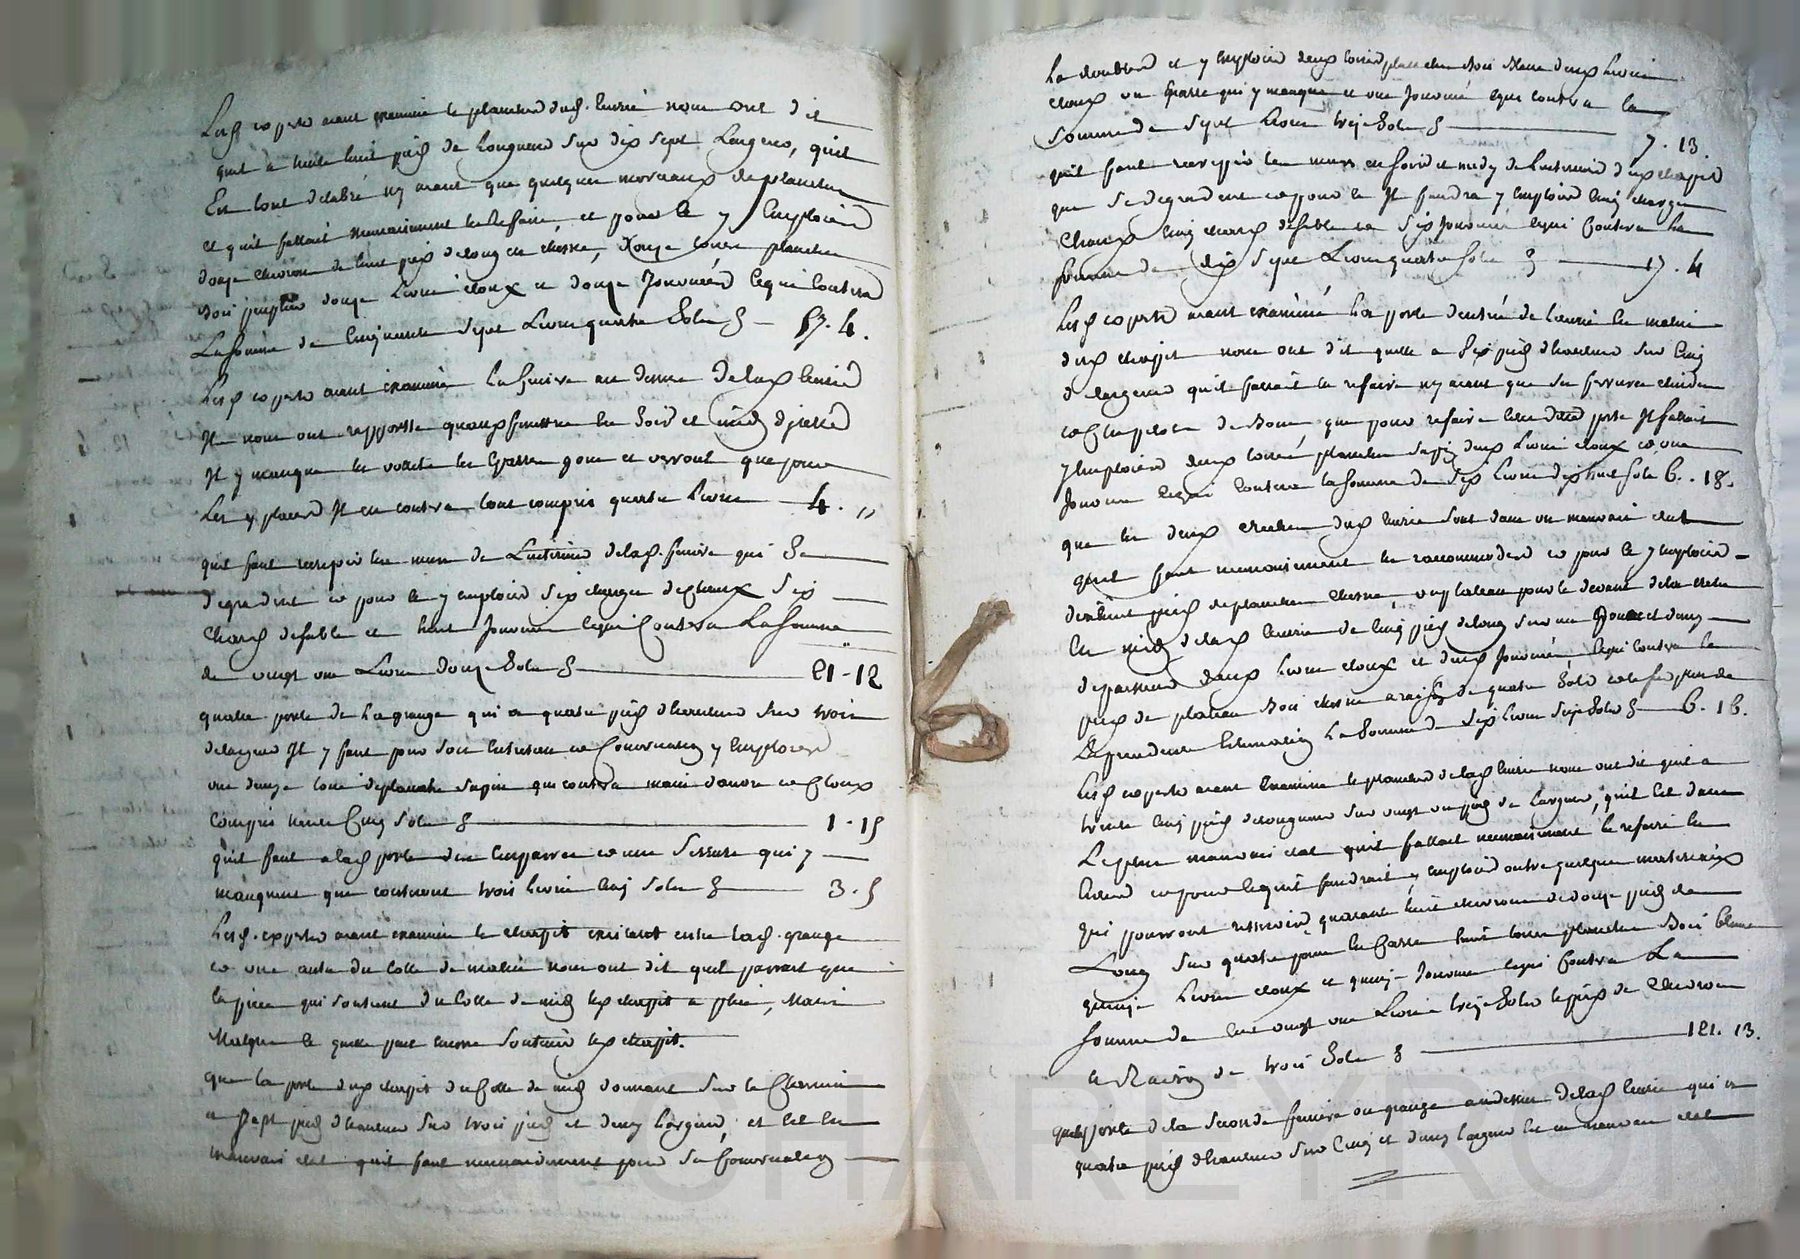 Lesd experts aiant examiné le plancher dud. écurie nous ont dit
quil a trente huit pieds de longueur sur dix sept Largeur, quil
Est tout délabré ny aiant que quelques morceaux de planches
et quil fallait necessairement le Refaire, et pour ce y Employer
douze chevrons de huit pieds de long en chesne, douze toises planches
bois peuplier douze Livres cloux et douze Journées lequel coutera
La somme de Cinquante Sept Livres quatre Sols 57. 4.
Lesd experts aiant examiné La feniere au dessus de lad écurie
Il nous ont rapporté quaux fenestres de Soir et midy
Il y manque les vollets les Esparres gons et verroul que pour
Les y placer Il en coutera tout compris quatre Livres 4. "
quil faut recrepir les murs de Linterieur de lad. feniere qui Se
degradent et pour ce y employer Six charges de Chaux Six
Chars de sable et huit Journées lequel Coutera La somme
de vingt une Livres douze Sols 21-12
quala porte de La grange qui a quatre pieds d hauteur Sur trois
de largeur Il y faut pour son entretien et Conservation y Employer
une demye toise de planche Sapin que coutera main doeuvre et Cloux
Compris trente Cinq Sols 1-15
quil faut a lad porte une Emparre et une Serrure qui y
manquent que couteront trois Livres Cinq Sols 3.5
Lesd. experts aiant examiné le chappit existant entre lad. grange
et une autre du Cotté de matin nous ont dit quil parroit que
la piece qui soutient du Cotté de midy led chappit a plié, Mais
Malgré ce quelle peut encore Soutenir led chappit.
que la porte dud chappit du Cotté de midy donnant Sur le Chemin
a Sept pieds d hauteur Sur trois pieds et demy Largeur, et Est en
mauvais etat quil faut necessairement pour Sa Conservation
La doubler et y Employer deux toises planches Bois Blanc deux Livres
cloux un Esparre qui y manque et une Journée lequel coutera la
Somme de Sept Livres treize Sols 7. 13.
quil faut recrepir les murs en Soir et midy de Linterieur dud chappit
que Se degradent et pour ce Il faudra y Employer Cinq charges
Chaux Cinq chars de sable et Six Journées lequel Coutera la
Somme de dix Sept Livres quatre Sols 17. 4
Lesd experts aiant examiné La porte dentrée de Lecurie de matin
dud chappit nous ont dit quelle a Six pieds d hauteur Sur Cinq
d largeur quil fallait la refaire ny aiant que Sa ferrure
que pour refaire lad porte Il fallait
y Employer deux toises planches Sapin deux Livres cloux et une
Journée lequel Coutera la Somme de Six Livres dix huit Sols 6. 18.
que les deux creches dud Ecurie Sont dans un mauvais etat
quil faut necessairement les raccommoder et pour ce y Employer
pieds de planches chesne, un plateau pour le devant de la creche
en midy de lad Ecurie de Cinq pieds de long Sur un Pouce et demy
depaisseur deux Livres cloux et deux Journées lequel coutera le
pied de plateau Bois chesne a raison de quatre Sols
La Somme de Six Livres Seize Sols 6. 16.
Lesd experts aiant Examiné le plancher de lad Ecurie nous ont dit quil a
trente Cinq pieds de longueur Sur vingt un pieds de Largeur, quil Est dans
Le plus mauvais etat quil fallait necessairement le refaire en
Entier et pour lequel faudrait y employer outre quelques materiaux
qui pourront resservir, quarante huit chevrons de douze pieds de
Long Sur quatre pouces en Carré huit toises planches Bois blanc
quinze Livres cloux et quinze Journées lequel Coutera La
Somme de Cent vingt une Livres treize Sols le pied de chevron
a Raison de trois Sols 121. 13.
quala porte de la Seconde feniere ou grange au dessus de lad Ecurie qui a
quatre pieds d hauteur Sur Cinq et demy largeur Est en mauvais etat
CHAREYRON